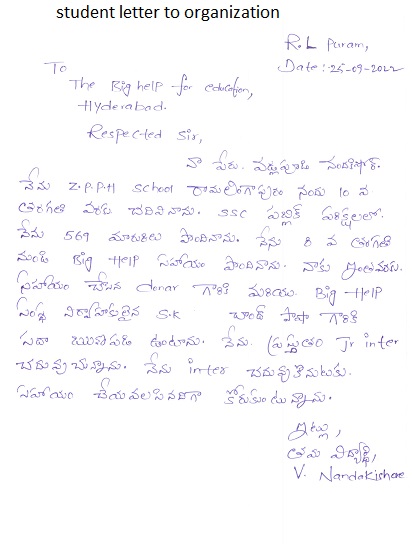 student letter to organization
R.L Puram,
Date: 25-09-2022
To
The Big help for education,
Hyderabad.
Respected Sir,
నా పేరు. వడ్లపూడి నందకిషోర్.
నేను Z.P.P.H School రామలింగాపురం నందు 10 వ
తరగతి వరకు చదివినాను. SSC పబ్లిక్ పరీక్షలలో.
నేను 569 మార్కులు పొందినాను. నేను 8 వ తరగతి
నుండి Big Help సహాయం పొందినాను. నాకు ఇంతవరకు
సహాయం చేసిన donar గారికి మరియు Big Help
సంస్థ నిర్వాహకులైన S.K చాంద్ పాషా గారికి
సదా ఋణపడి ఉంటాను. నేను ప్రస్తుతం Jr inter
చదువుచున్నాను. నేను inter చదువుకొనుటకు.
సహాయం చేయవలసినదిగా కోరుకుంటున్నాను.
ఇట్లు,
తమ విద్యార్థి,
V. Nandakishore